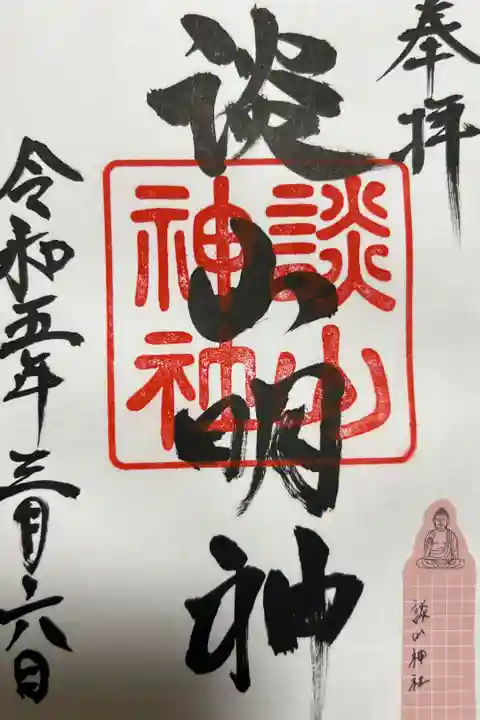 奉拝
談山明神
談山
神社
令和五年三月六日
談山神社